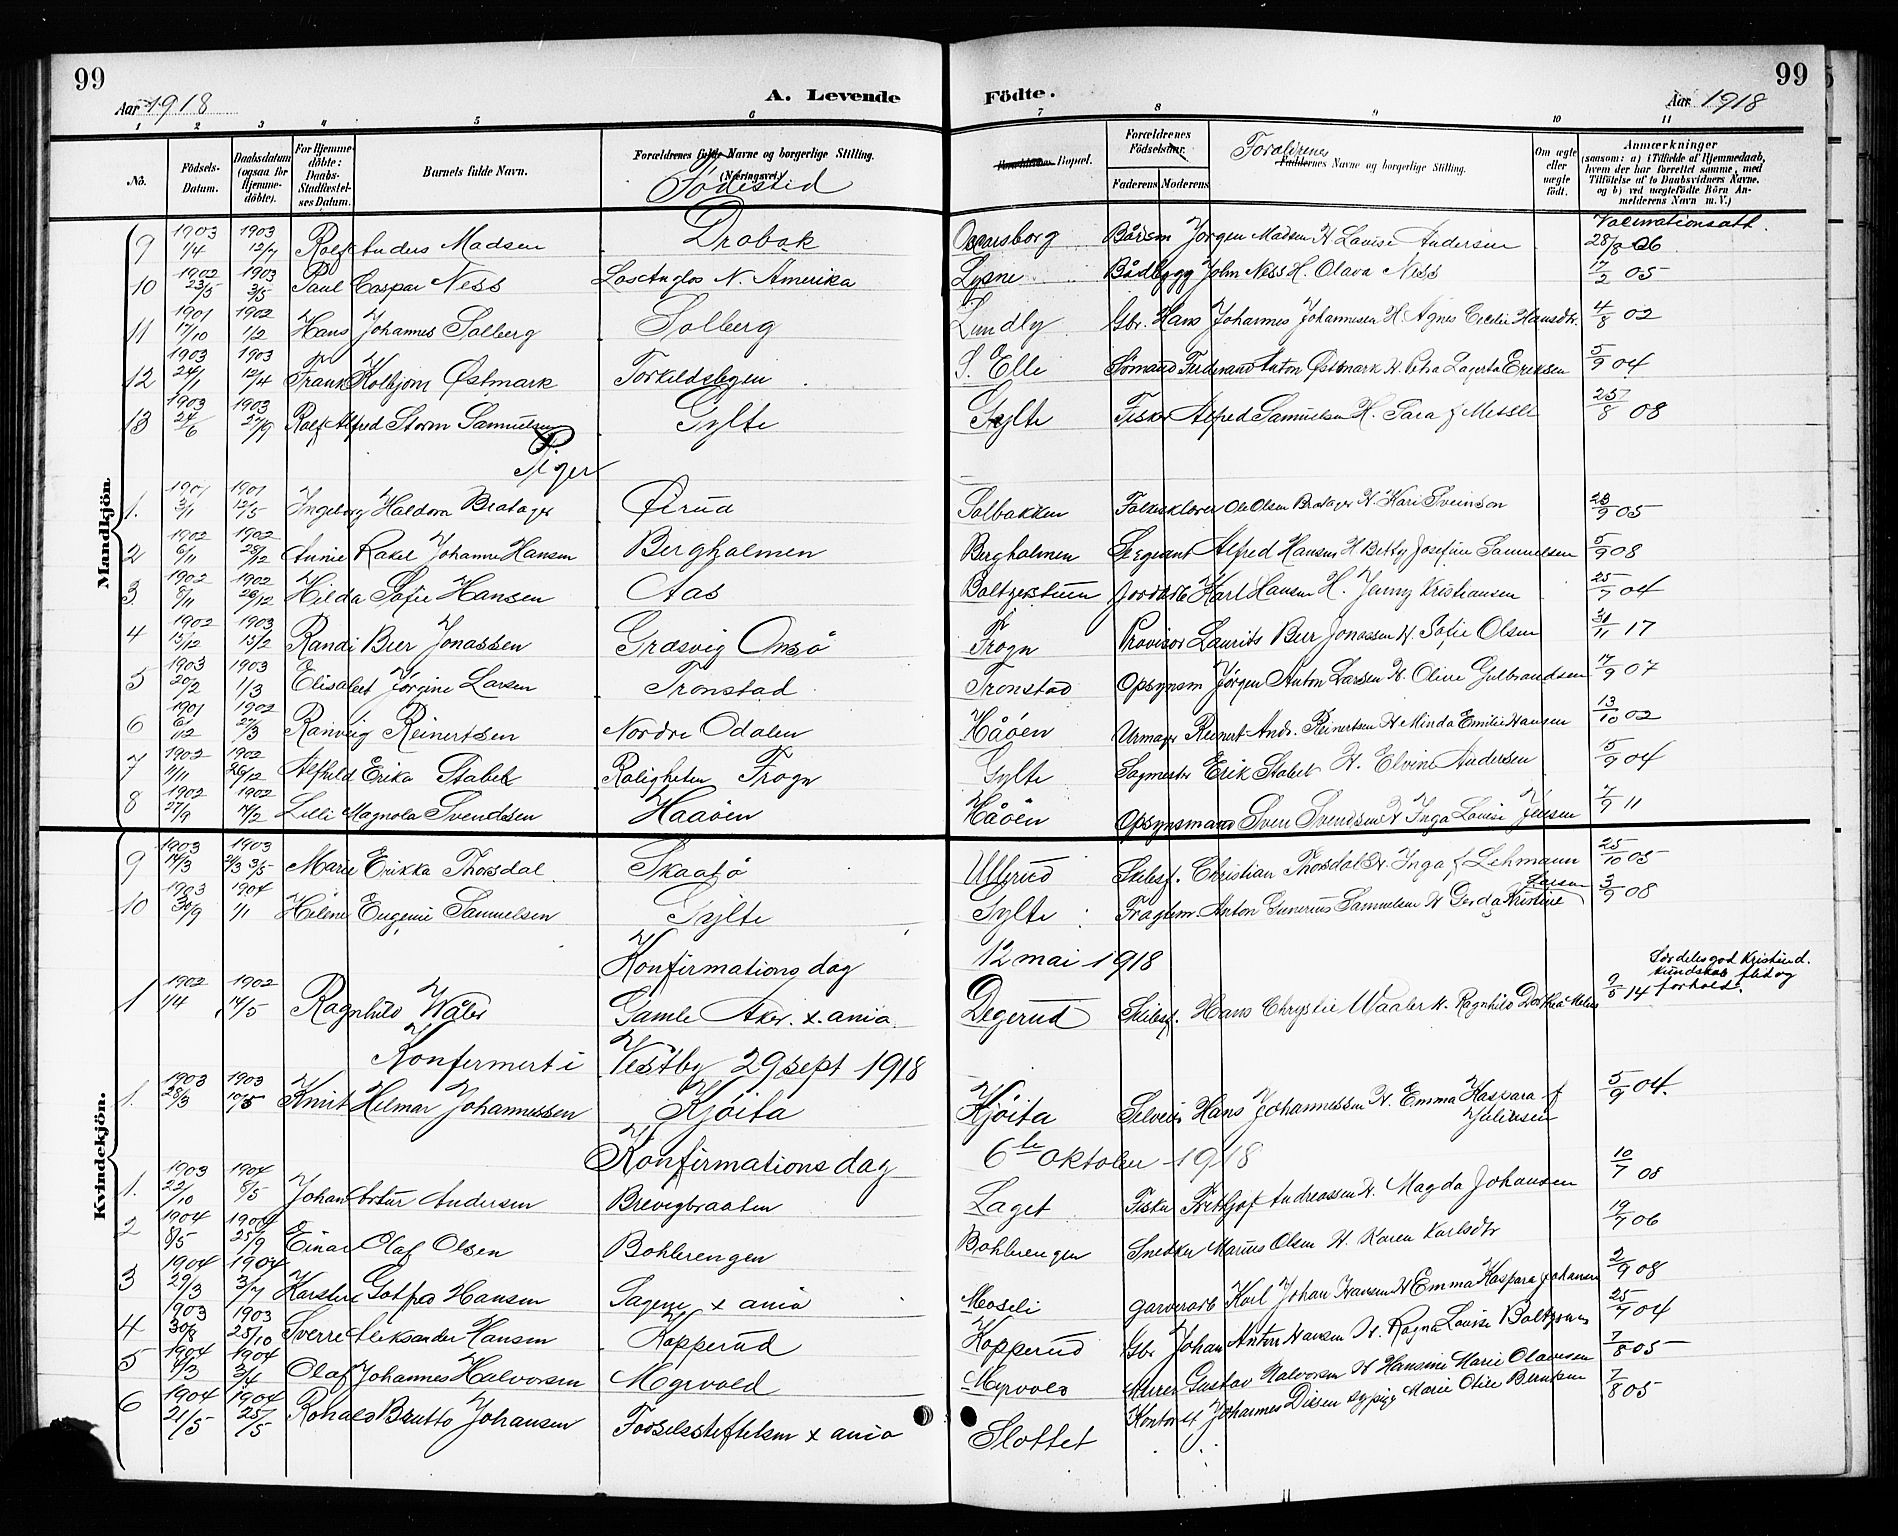 99
Aar 1918
A. Levende
Födte.
Aar 1918
99
1 2 3 4 5 6 7 8 9 10 11
No.
Födsels-Datum.
Daabsdatum (ogsaa for Hjemmedöbte).
For Hjemmedöbte: Daabs-Stadfæstelses Datum.
Barnets fulde Navn.
Forældrenes fulde Navne og borgerlige Stilling. (Næringsvei.)
Fødested
Forældrenes Bopæl.
Forældrenes Födselsaar.
Faderens Moderens
Foraldrenes
Faddernes Navne og borgerlige Stilling.
Om ægte eller uægte födt.
Anmærkninger (saasom: a) i Tilfælde af Hjemmedaab, hvem der har forrettet samme, med Tilföielse af to Daabsvidners Navne, og b) ved uægtefödte Börn Anmelderens Navn m. V.)
Vaccinationsatt.
Mandkjön.
9 1903 1/4 1903 12/7 Rolf Anders Madsen Drøbak Oscarsborg Bådsm Jørgen Madsen H Lovise Andersen 28/8 06
10 1902 23/5 1903 3/5 Paul Caspar Ness Los Anglos N. Amerika Lysne Bådbygg John Ness H. Olava Ness 17/2 05
11 1901 17/10 1902 1/2 Hans Johannes Solberg Solberg Lundly Gbr. Hans Johannes Johannesen H. Agnes Hansdtr. 4/8 02
12 1903 24/1 1903 12/4 Frank Kolbjørn Østmark Torkildsbyen S. Elle Sømand Ferdinand Anton Østmark H. Petra Lagerta Eriksen 5/9 04
13 1903 24/6 1903 27/9 Rolf Alfred Storm Samuelsen Gylte Gylte Fisker Alfred Samuelsen H. Sara f. Messel 25/8 08
Piger
1. 1901 2/1 1901 12/5 Ingeborg Haldora Bratager Ørud Solbakken Ole Olsen Bratager H. Kari Svenson 23/9 05
2 1902 6/11 1902 28/12 Annie Rakel Johanne Hansen Bergholmen Bergholmen Sergeant Alfred Hansen H Betty Josefine Samuelsen 5/9 08
3. 1902 8/11 1902 26/12 Hilda Sofie Hansen Aas Boltzerstuen Karl Hansen H. Jenny Kristiansen 25/7 04
4 1902 15/12 1903 15/2 Randi Beer Jonassen Græsvig Onsø Frogn Provisor Laurits Beer Jonassen H Sofie Olsen 31/11 17
5 1903 20/2 1903 1/3 Elisabet Jørgine Larsen Tronstad Tronstad Opsynsm Jørgen Anton Larsen H. Oline Gulbrandsen 17/9 07
6 1901 6/12 1902 27/3 Ranveig Reinertsen Nordre Odalen Håøen Urmager Reinert Andr. Reinertsen H Minda Emilie Hansen 13/10 02
7 1902 4/11 1902 26/12 Alfhild Erika Stabek Roligheten Frogn Gylte Sagmester Erik Stabek H. Elvine Andersen 5/9 04
8 1902 27/9 1902 14/2 Lilli Magnola Svendsen Haaøen Håøen Opsynsmand Sven Svendsen H Inga Lovise Jensen 7/9 11
Kvindekjön.
9 1903 14/3 1903 3/5 Marie Erikka Thorsdal Skaatø Ullerud Skibsf. Christian Thorsdal H. Inga f. Lehmann 25/10 05
10 1903 30/9 1904 1/1 Helene Eugenie Samuelsen Gylte Gylte Fragtem Anton Gunerius Samuelsen H Gerda Kristine Larsen 3/9 08
Konfirmationsdag 12 mai 1918
1 1902 1/4 1902 14/5 Ragnhild Wåler Gamle Aker. x. ania Degerud Skibsf. Hans Chrystie Waaler H. Ragnhild Dorthea 9/5 14 Særdeles god Kristend. kundskab flid og forhold.
Konfermert i Vestby 29 sept 1918
1. 1903 28/3 1903 10/5 Knut Hilmar Johannessen Kjøita Kjøita Hans Johannessen H. Emma Kaspara f Juliussen 5/9 04.
Konfirmationsdag 6te oktober 1918
1. 1903 22/10 1904 8/5 Johan Artur Andersen Brevigbraaten Laget Fisker Fritjof Andreassen H. Magda Johansen 10/7 08
2 1904 8/5 1904 25/9 Einar Olaf Olsen Bohlerengen Bohlerengen Snedker Marius Olsen H. Karen Karlsdtr 19/7 06
3 1904 29/3 1904 3/7 Karsten Gotfred Hansen Sagene x ania Moseli garverarb Karl Johan Hansen H Emma Kaspara Johansen 2/9 08
4 1903 30/8 1903 25/10 Sverre Aleksander Hansen Kopperud Kopperud Gbr Johan Anton Hansen H. Ragna Lovise Boltzersen 25/7 04
5 1904 4/3 1904 3/4 Olaf Johannes Halvorsen Myrvold Myrvold Murer Gustav Halvorsen H Hansine Marie Olavesen 7/8 05
6 1904 21/5 1904 25/5 Ronald Brutto Johansen Fødselsstiftelsen x ania Slottet Kontorist Johannes Diesen sypige Marie Otilie Berntsen 7/8 05